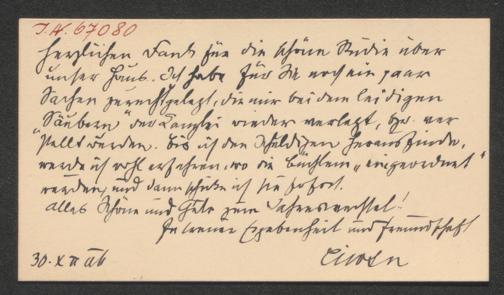 I.N. 67080
Herzlichen Dank für die schöne Studie über
unser Haus. Ich habe für Sie noch ein paar
Sachen zurechtgelegt, die mir bei dem leidigen
„Säubern“ der Kanzlei wieder verlegt, bzw. ver
stellt werden. Bis ich den Schuldigen herausfinde,
werde ich wohl erfahren, wo die Büchlein „eingeordnet“
wurden, und dann schicke ich sie sofort.
Alles Schöne und Gute zum Jahreswechsel!
In treuer Ergebenheit und Freundschaft
30. XII